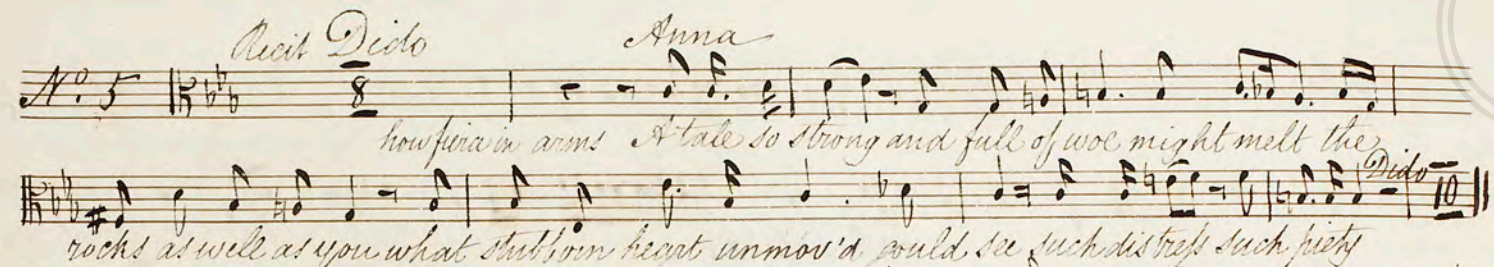 Recit Dido Anna
No. 5 8
how fierce in arms A tale so strong and full of woe might melt the
Dido 10
rocks as well as you what stubborn heart unmov'd could see such distress such piety